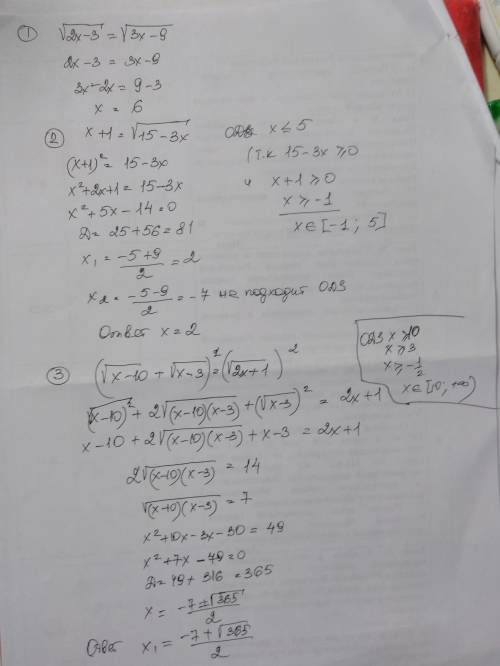 ① √(2x-3) = √(3x-9)
2x-3 = 3x-9
3x-2x = 9-3
x = 6
② x+1 = √(15-3x) ОДЗ x ≤ 5
(x+1)² = 15-3x (т.к 15-3x ≥ 0
x²+2x+1 = 15-3x и x+1 ≥ 0
x²+5x-14=0 x ≥ -1
D = 25+56 = 81 x ∈ [-1; 5]
x₁ = (-5+9)/2 = 2
x₂ = (-5-9)/2 = -7 не подходит ОДЗ
Ответ x = 2
ОДЗ x ≥ 10
x ≥ 3
x ≥ -1/2
x ∈ [10; +∞)
③ (√(x-10) + √(x-3))² = (√(2x+1))²
(√(x-10))² + 2√((x-10)(x-3)) + (√(x-3))² = 2x+1
x-10 + 2√((x-10)(x-3)) + x-3 = 2x+1
2√((x-10)(x-3)) = 14
√((x+10)(x-3)) = 7
x²+10x-3x-30 = 49
x²+7x-79=0
D = 49 + 316 = 365
x = (-7±√365)/2
Ответ x₁ = (-7+√365)/2